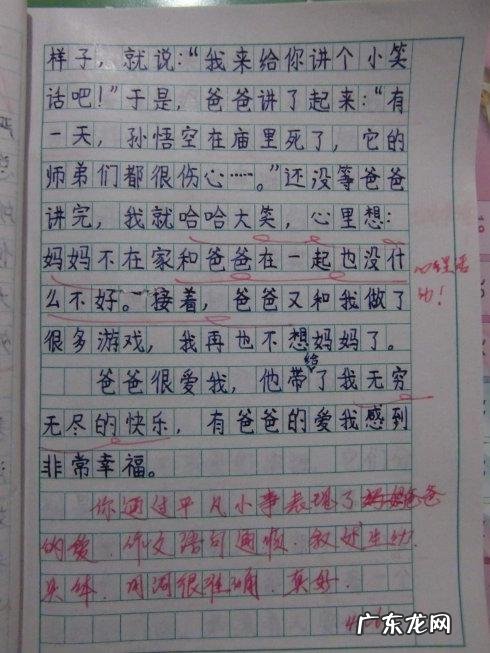 样子，就说：“我来给你讲个小笑
话吧！”于是，爸爸讲了起来：“有
一天，孙悟空在庙里死了，它的
师弟们都很伤心……。”还没等爸爸
讲完，我就哈哈大笑，心里想：
妈妈不在家和爸爸在一起也没什
么不好。接着，爸爸又和我做了
很多游戏，我再也不想妈妈了。
爸爸很爱我，他带给了我无穷
无尽的快乐，有爸爸的爱我感到
非常幸福。
你通过平凡小事表现了爸爸
的爱，作文语句通顺，叙述生动
具体，用词很准确，真好。
广东龙网